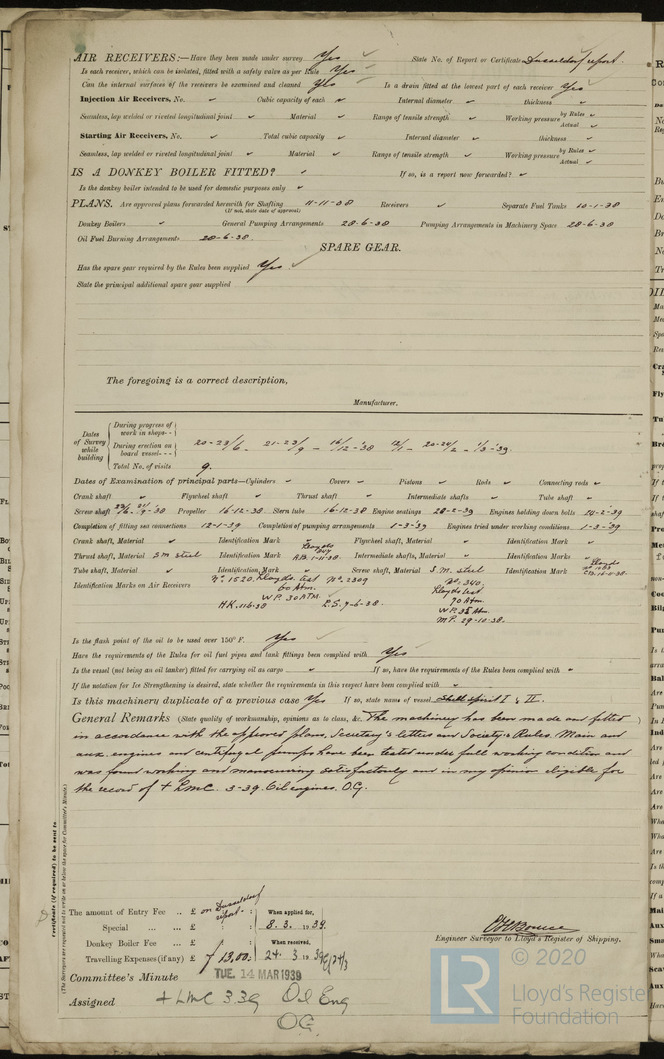 AIR RECEIVERS:—Have they been made under survey Yes ✓ State No. of Report or Certificate Dusseldorf report.
Is each receiver, which can be isolated, fitted with a safety valve as per Rule Yes
Can the internal surfaces of the receivers be examined and cleaned Yes Is a drain fitted at the lowest part of each receiver Yes
Injection Air Receivers, No. ✓ Cubic capacity of each ✓ Internal diameter ✓ thickness ✓
Seamless, lap welded or riveted longitudinal joint ✓ Material ✓ Range of tensile strength ✓ Working pressure by Rules ✓ Actual ✓
Starting Air Receivers, No. ✓ Total cubic capacity ✓ Internal diameter ✓ thickness ✓
Seamless, lap welded or riveted longitudinal joint ✓ Material ✓ Range of tensile strength ✓ Working pressure by Rules ✓ Actual ✓
IS A DONKEY BOILER FITTED? ✓ If so, is a report now forwarded? ✓
Is the donkey boiler intended to be used for domestic purposes only ✓
PLANS. Are approved plans forwarded herewith for Shafting 11-11-38 Receivers ✓ Separate Fuel Tanks 10-1-38
(If not, state date of approval)
Donkey Boilers ✓ General Pumping Arrangements 28-6-38 Pumping Arrangements in Machinery Space 28-6-38
Oil Fuel Burning Arrangements 28-6-38.
SPARE GEAR.
Has the spare gear required by the Rules been supplied Yes ✓
State the principal additional spare gear supplied
The foregoing is a correct description,
Manufacturer.
Dates of Survey while building
During progress of work in shops - -
During erection on board vessel - - - 20-23/6 - 21-23/9 - 16/12-'38 12/1 - 20-24/2 - 1/3-'39.
Total No. of visits 9.
Dates of Examination of principal parts—Cylinders ✓ Covers ✓ Pistons ✓ Rods ✓ Connecting rods ✓
Crank shaft ✓ Flywheel shaft ✓ Thrust shaft ✓ Intermediate shafts ✓ Tube shaft ✓
Screw shaft Propeller 16-12-38 Stern tube 16-12-38 Engine seatings 28-2-39 Engines holding down bolts 24-2-'39
Completion of fitting sea connections 12-1-39 Completion of pumping arrangements 1-3-'39 Engines tried under working conditions 1-3-'39
Crank shaft, Material ✓ Identification Mark ✓ Flywheel shaft, Material ✓ Identification Mark ✓
Thrust shaft, Material S.M. steel Identification Mark Lloyds Intermediate shafts, Material ✓ Identification Marks ✓
Tube shaft, Material ✓ Identification Mark ✓ Screw shaft, Material S.M. steel Identification Mark Lloyds
Identification Marks on Air Receivers No. 1520. Lloyds test No. 2309 No. 340.
60 Atm. Lloyds test
W.P. 30 ATM. 70 Atm.
H.K. 11-6-38 L.S. 7-6-38. W.P. 35 Atm.
M.P. 29-10-38.
Is the flash point of the oil to be used over 150° F. Yes
Have the requirements of the Rules for oil fuel pipes and tank fittings been complied with Yes
Is the vessel (not being an oil tanker) fitted for carrying oil as cargo ✓ If so, have the requirements of the Rules been complied with ✓
If the notation for Ice Strengthening is desired, state whether the requirements in this respect have been complied with ✓
Is this machinery duplicate of a previous case Yes If so, state name of vessel Shell Spirit I & II.
General Remarks (State quality of workmanship, opinions as to class, &c. The machinery has been made and fitted )
in accordance with the approved plans, Secretary's letters and Society's Rules. Main and
aux. engines and centrifugal pumps have been tested under full working condition and
was found working and manoeuvring satisfactorily and in my opinion eligible for
the record of + LMC. 3-39. Oil engines. O.G.
Certificate (if required) to be sent to
(The Surveyors are requested not to write on or below the space for Committee's Minute.)
The amount of Entry Fee .. £ on Dusseldorf report. When applied for,
Special ... ... £ 8. 3. 1939.
Donkey Boiler Fee ... £ When received,
Travelling Expenses (if any) £ 13,00: 24. 3. 1939
Engineer Surveyor to Lloyd's Register of Shipping.
Committee's Minute TUE. 14 MAR 1939
Assigned + LMC 3.39 Oil Eng
OG
© 2020
LR Lloyd's Register
Foundation